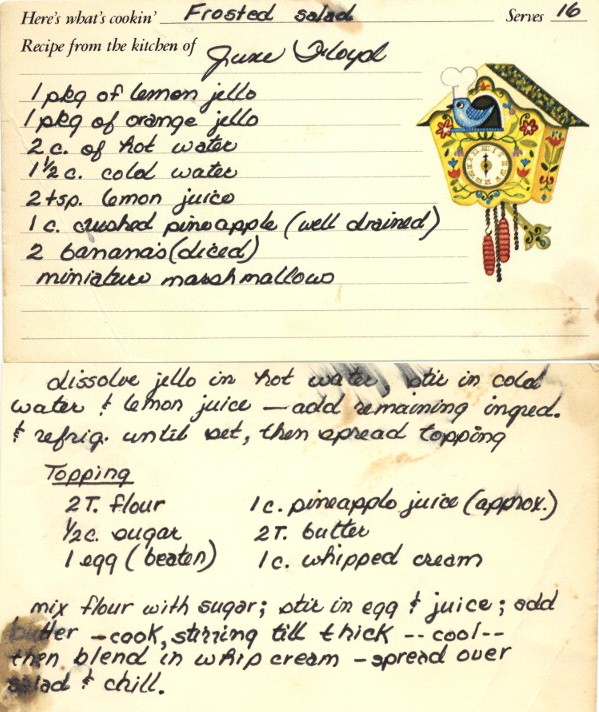 Here's what's cookin' Frosted salad Serves 16
Recipe from the kitchen of June Floyd
1 pkg of lemon jello
1 pkg of orange jello
2 c. of hot water
1½ c. cold water
2 tsp. lemon juice
1 c. crushed pineapple (well drained)
2 bananas (diced)
miniature marshmallows
dissolve jello in hot water, stir in cold
water & lemon juice — add remaining ingred.
& refrig. until set, then spread topping
Topping
2 T. flour 1 c. pineapple juice (approx.)
½ c. sugar 2 T. butter
1 egg (beaten) 1 c. whipped cream
mix flour with sugar; stir in egg & juice; add
butter - cook, stirring till thick -- cool --
then blend in whip cream - spread over
salad & chill.